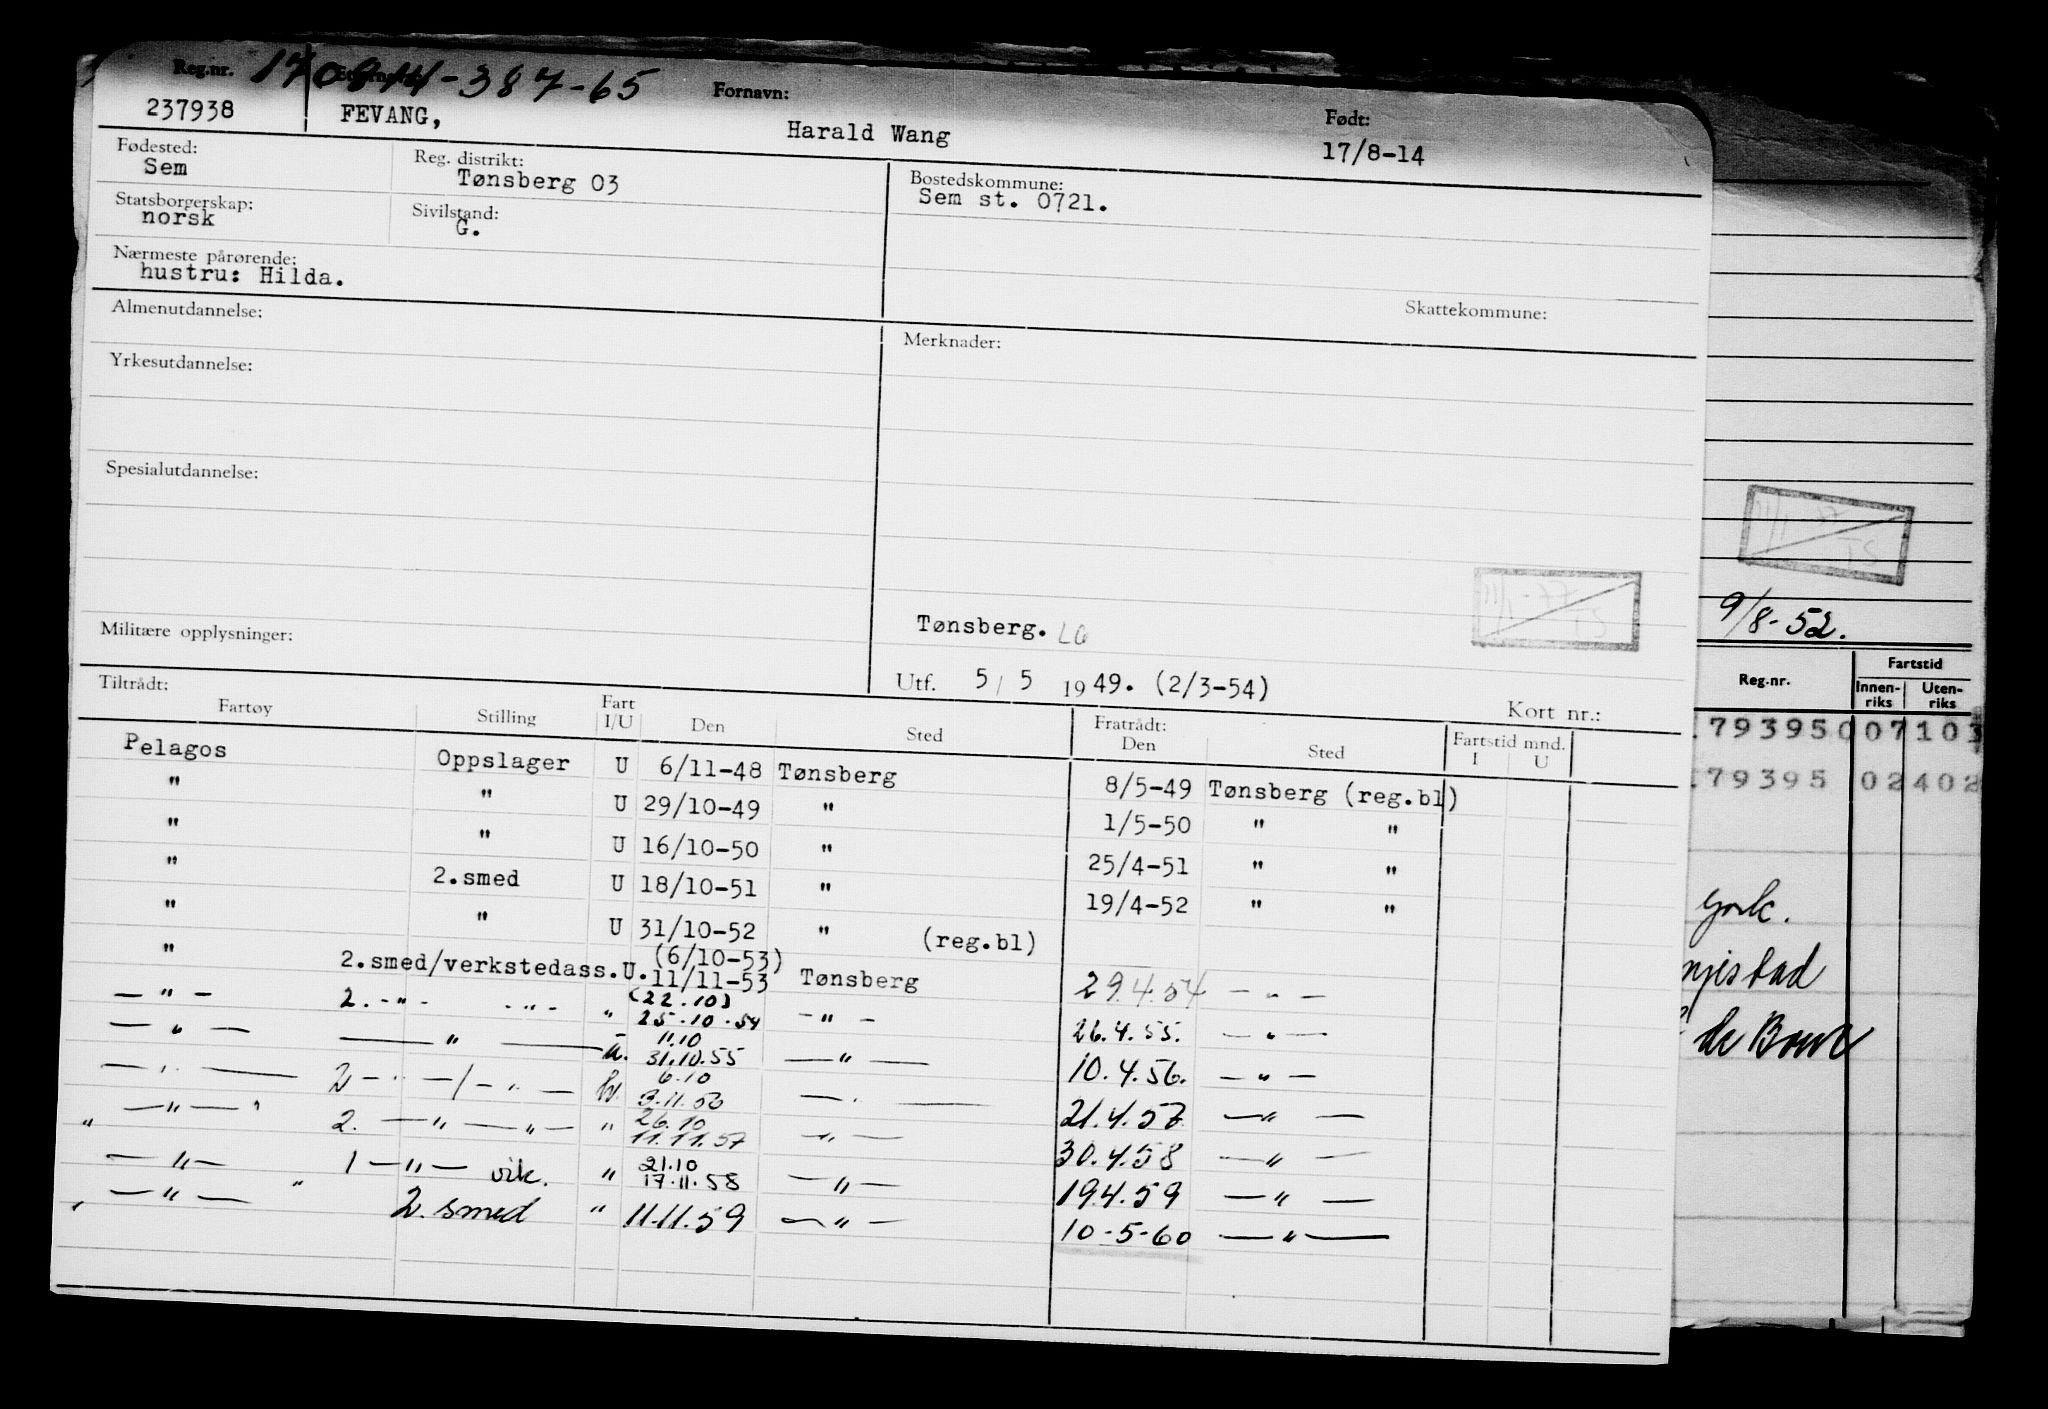 Reg.nr. 170814-387-65 Fornavn: Født:
237938 FEVANG, Harald Wang 17/8-14
Fødested: Reg. distrikt: Bostedskommune:
Sem Tønsberg 03 Sem st. 0721.
Statsborgerskap: Sivilstand:
norsk G.
Nærmeste pårørende:
hustru: Hilda.
Skattekommune:
Almenutdannelse: Merknader:
Yrkesutdannelse:
Spesialutdannelse:
Militære opplysninger: Tønsberg. LG
Utf. 5/ 5 1949. (2/3-54)
Tiltrådt: Kort nr.:
Fartøy Stilling Fart I/U Den Sted Fratrådt: Den Sted Fartstid mnd. I U
Pelagos Oppslager U 6/11-48 Tønsberg 8/5-49 Tønsberg (reg.bl)
" " U 29/10-49 " 1/5-50 " "
" " U 16/10-50 " 25/4-51 " "
" 2.smed U 18/10-51 " 19/4-52 " "
" " U 31/10-52 " (reg.bl)
" 2.smed/verkstedass.U. (6/10-53) 11/11-53 Tønsberg 29.4.54 — " —
— " — 2. — " — — " — " (22.10) 25.10.54 — " — 26.4.55. — " —
— " — — " — u. 11.10 31.10.55 — " — 10.4.56. — " —
— " — 2 — " — / — " — 6.10 3.11.56 — " — 21.4.57 — " —
" — " — " 2. — " — " — " 26.10 11.11.57 — " — 30.4.58 — " —
— " — 1 — " — vik. " 21.10 17.11.58 — " — 19.4.59 — " —
" — " — " 2. smed " 11.11.59 — " — 10-5-60 — " —
9/8-52.
Reg.nr. Fartstid
Innen-riks Uten-riks
793950 07 103
79395 02 402
york.
de Bowe